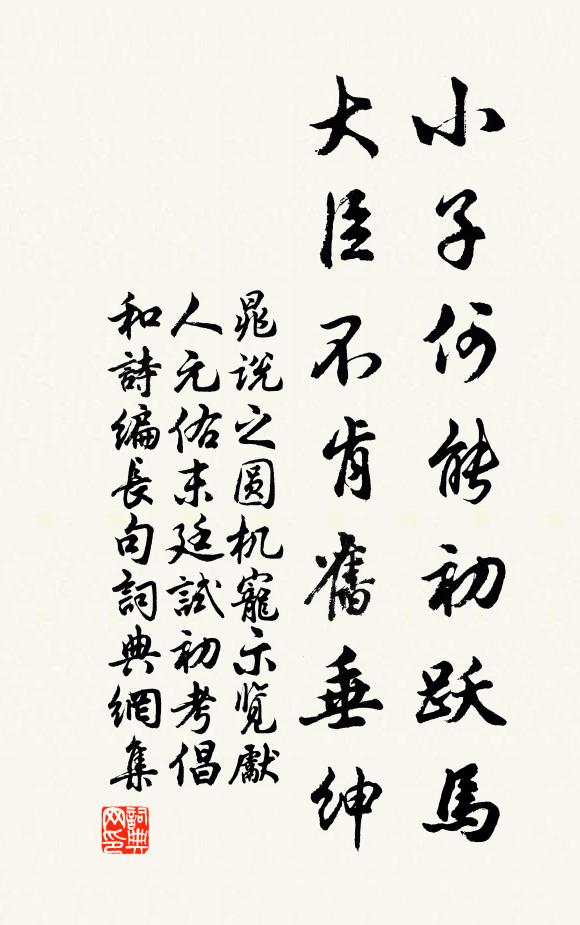 小子何能初跃馬
大臣不肯舊垂紳
晁说之圆机寵示覽獻
人元佑末廷試初考倡
和詩编長句詞典網集
詞典网印